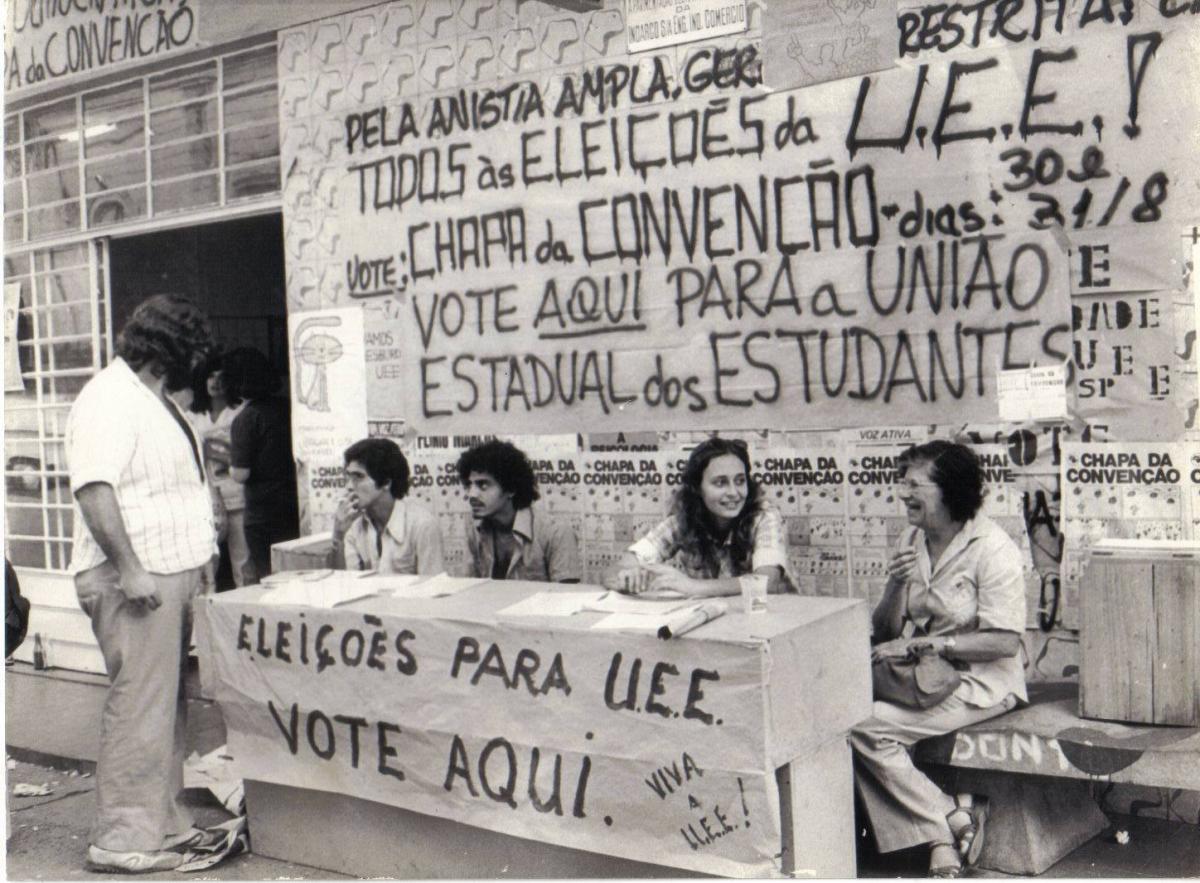 DA CONVENÇÃO
DA
INDARCO S/A ENG. IND. COMERCIO
RESTRITA!
PELA ANISTIA AMPLA, GER
TODOS às ELEIÇOES da U.E.E.!
VOTE: CHAPA da CONVENÇÃO - dias: 30 e 31/8
VOTE AQUI PARA a UNIÃO
ESTADUAL dos ESTUDANTES
UEE
VOZ ATIVA
CHAPA DA
CONVENÇÃO
CHAPA DA
CONVENÇÃO
CHAPA DA
CONVENÇÃO
CHAPA DA
CONVENÇÃO
ELEIÇÕES PARA U.E.E.
VOTE AQUI.
VIVA
A
U.E.E.!
DONT